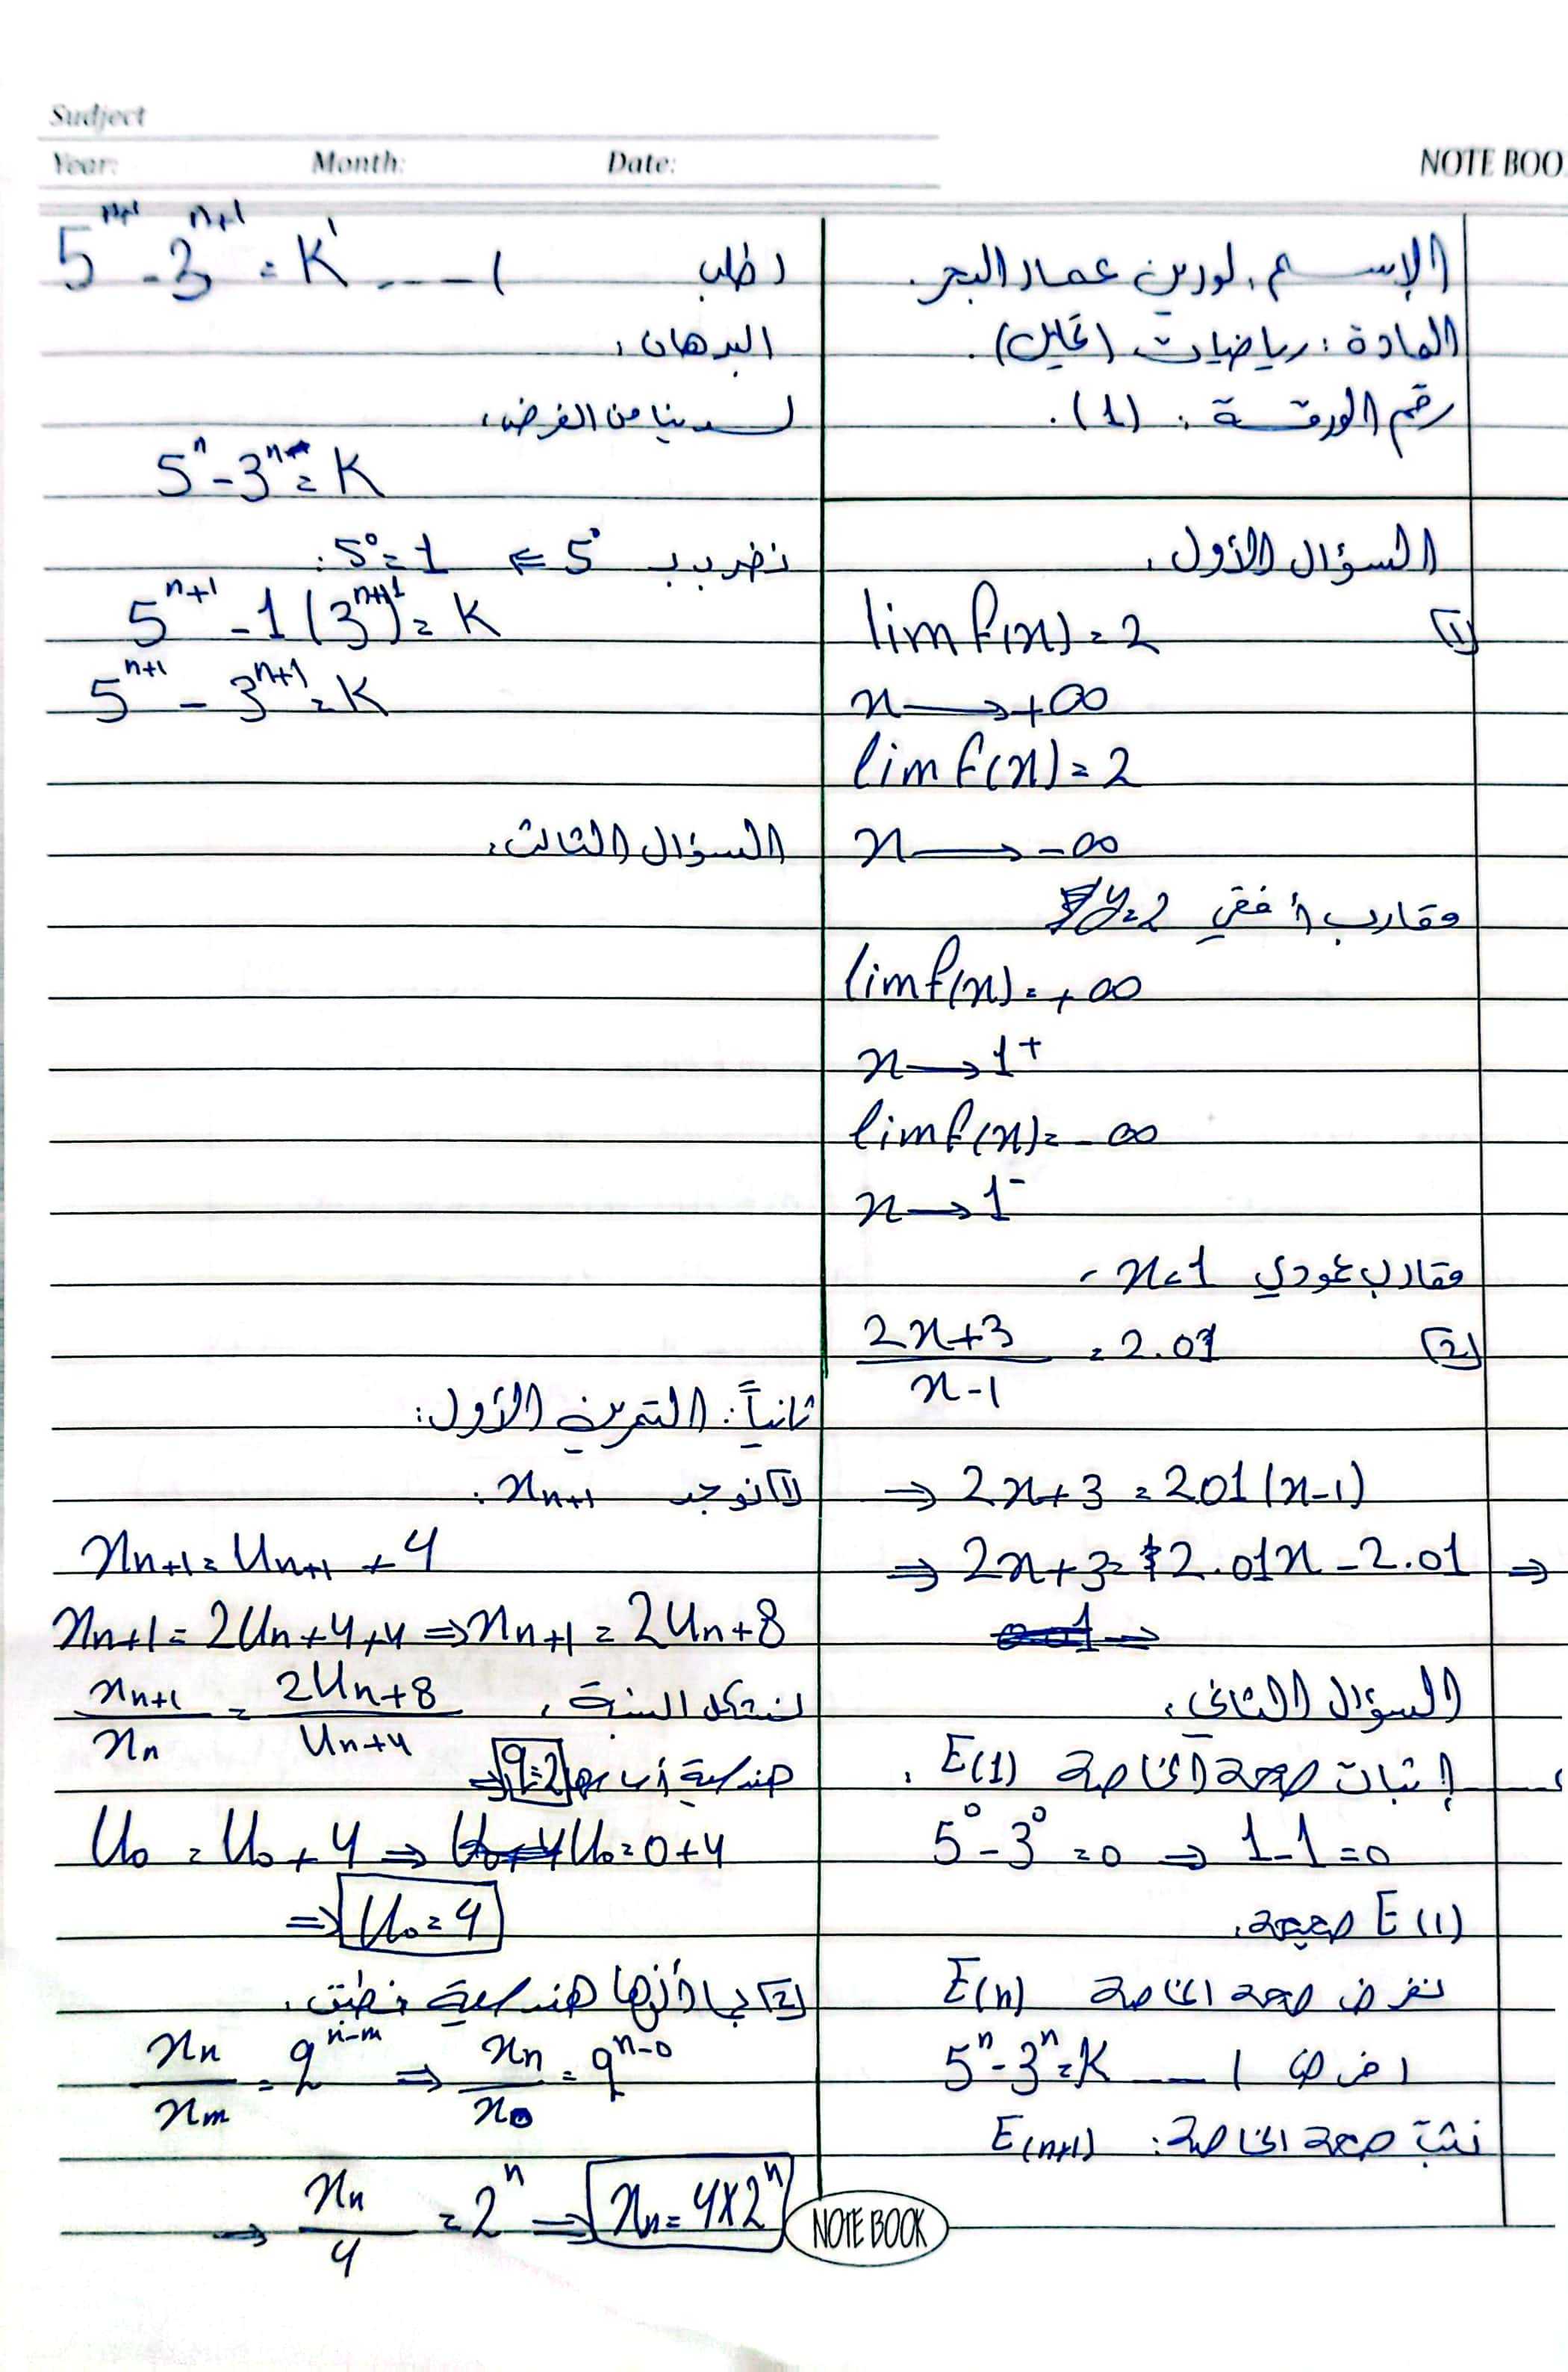 Sudject
Year: Month: Date:
NOTE BOO
الإسم: لورين عمار البحر.
المادة: رياضيات (تحليل).
رقم الورقة: (1).
السؤال الأول:
(1) lim f(x) = 2
x → +∞
lim f(x) = 2
x → -∞
مقارب أفقي y=2
lim f(x) = +∞
x → 1⁺
lim f(x) = -∞
x → 1⁻
مقارب عمودي x=1
(2) (2x+3)/(x-1) = 2.01
⇒ 2x+3 = 201(x-1)
⇒ 2x+3 = 2.01x - 2.01 ⇒
السؤال الثاني:
إثبات صحة الخاصة E(1):
5⁰ - 3⁰ = 0 ⇒ 1-1 = 0
E(1) صحيحة.
نفرض صحة الخاصة E(n)
5ⁿ - 3ⁿ = K ---- 1
نثبت صحة الخاصة: E(n+1)
5ⁿ⁺¹ - 3ⁿ⁺¹ = K' ---- 1 طلب
البرهان:
لدينا من الفرض:
5ⁿ - 3ⁿ = K
نضرب ب 5⁰ ⇐ 5⁰ = 1 :
5ⁿ⁺¹ - 1(3ⁿ⁺¹) = K
5ⁿ⁺¹ - 3ⁿ⁺¹ = K
السؤال الثالث:
ثانياً: التمرين الأول:
(1) نوجد xₙ₊₁ :
xₙ₊₁ = Uₙ₊₁ + 4
xₙ₊₁ = 2Uₙ+4+4 ⇒ xₙ₊₁ = 2Uₙ+8
نشكل النسبة: xₙ₊₁/xₙ = (2Uₙ+8)/(Uₙ+4)
هندسية أساسها q=2 ⇒
U₀ = U₀ + 4 ⇒ U₀ = 0+4
⇒ U₀ = 4
(2) بما أنها هندسية نطبق:
xₙ/xₘ = qⁿ⁻ᵐ ⇒ xₙ/x₀ = qⁿ⁻⁰
⇒ xₙ/4 = 2ⁿ ⇒ xₙ = 4×2ⁿ
NOTE BOOK